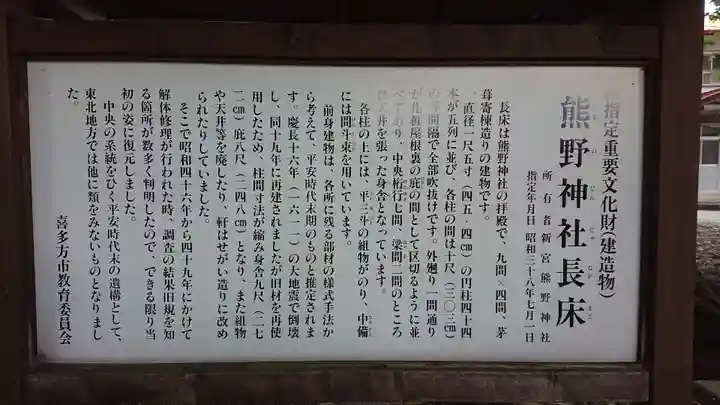 指定重要文化財(建造物)
熊野神社長床
くまのじんじゃながとこ
所有者 新宮熊野神社
指定年月日 昭和三十八年七月一日
長床は熊野神社の拝殿で、九間×四間、茅
葺寄棟造りの建物です。
直径一尺五寸(四五・四㎝)の円柱四十四
本が五列に並び、各柱の間は十尺(三〇三㎝)
の等間隔で全部吹抜けです。外廻り一間通り
が化粧屋根裏の庇の間として区切るように並
べてあり、中央桁行七間、梁間二間のところ
は天井を張った身舎となっています。
各柱の上には、平三斗の組物がのり、中備
には間斗束を用いています。
前身建物は、各所に残る部材の様式手法か
ら考えて、平安時代末期のものと推定されま
す。慶長十六年(一六一一)の大地震で倒壊
し、同十九年に再建されましたが旧材を再使
用したため、柱間寸法が縮み身舎九尺(二七
二㎝)庇八尺(二四八㎝)となり、また組物
や天井等を廃したり、軒はせがい造りに改め
られたりしていました。
そこで昭和四十六年から四十九年にかけて
解体修理が行われた時、調査の結果旧規を知
る箇所が数多く判明したので、できる限り当
初の姿に復元しました。
中央の系統をひく平安時代末の遺構として、
東北地方では他に類をみないものとなりまし
た。
喜多方市教育委員会